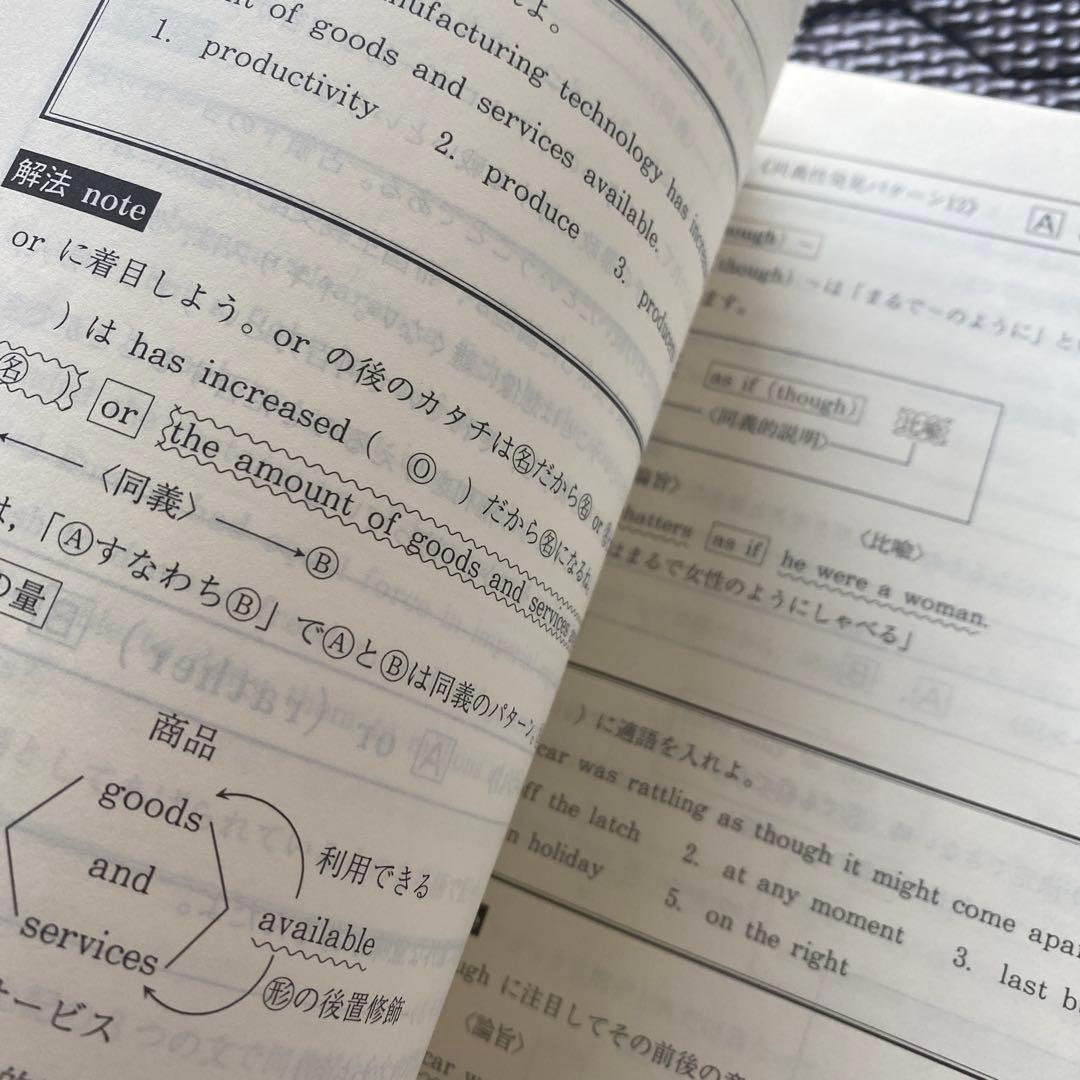 てよ。
nufacturing technology has incre
nt of goods and services available.
1. productivity 2. produce 3. produced
解法 note
or に着目しよう。or の後のカタチは㊔だから㊔ or
)は has increased ( Ⓞ )だから㊔になるね。
㊔ ) or the amount of goods and services
〈同義〉 Ⓑ
は,「Ⓐすなわち Ⓑ」でⒶとⒷは同義のパターン。
の量
商品
goods
and
services
利用できる
available
形の後置修飾
サービス
〈同義性発見パターン12〉
A
though) ~
though) ~は「まるで~のように」と
ます。
as if (though)
〈同義的説明〉
比喩
論旨〉
〈比喩〉
hatters as if he were a woman.
はまるで女性のようにしゃべる」
)に適語を入れよ。
car was rattling as though it might come apar
ff the latch 2. at any moment 3. last b
n holiday 5. on the right
ugh に注目してその前後の意
〈論旨〉
car w